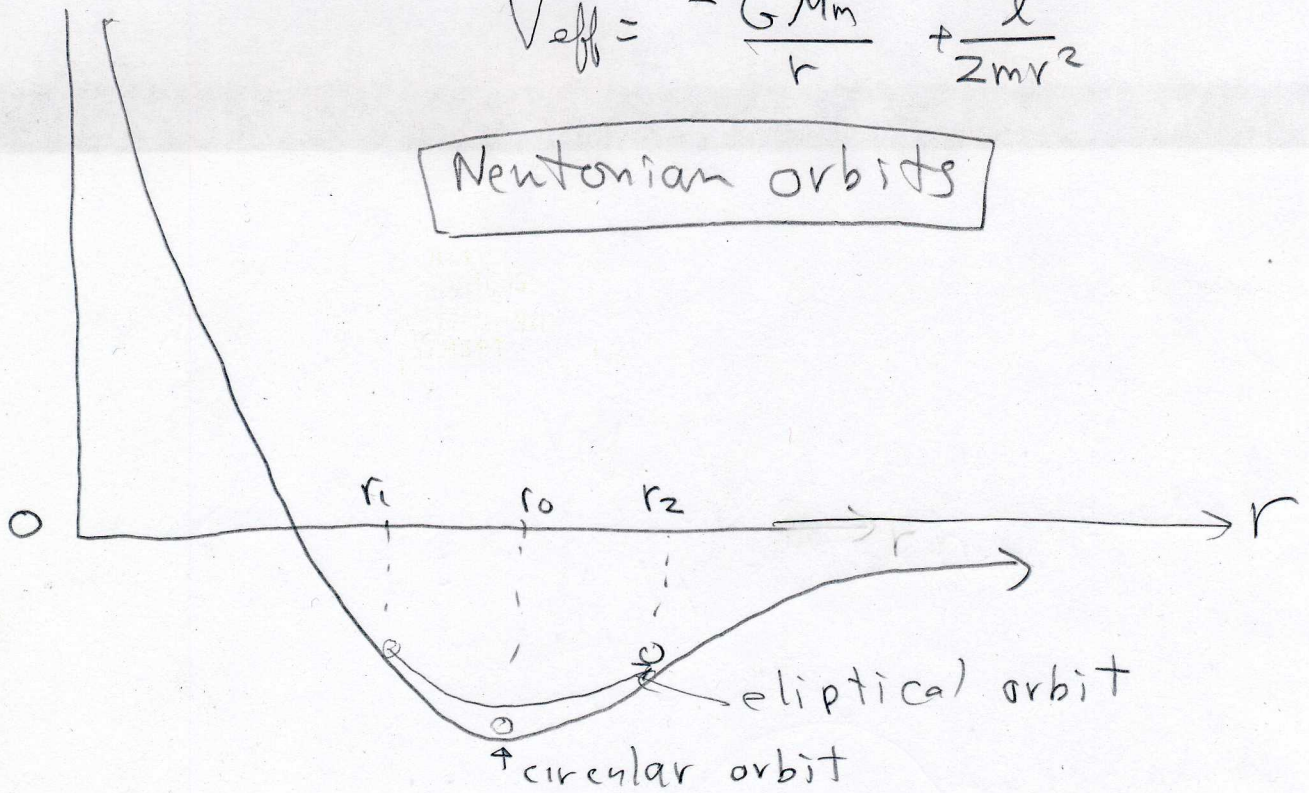 Veff = - GMm/r + l/2mr²
Newtonian orbits
r₁ r₀ r₂
0 r
eliptical orbit
circular orbit